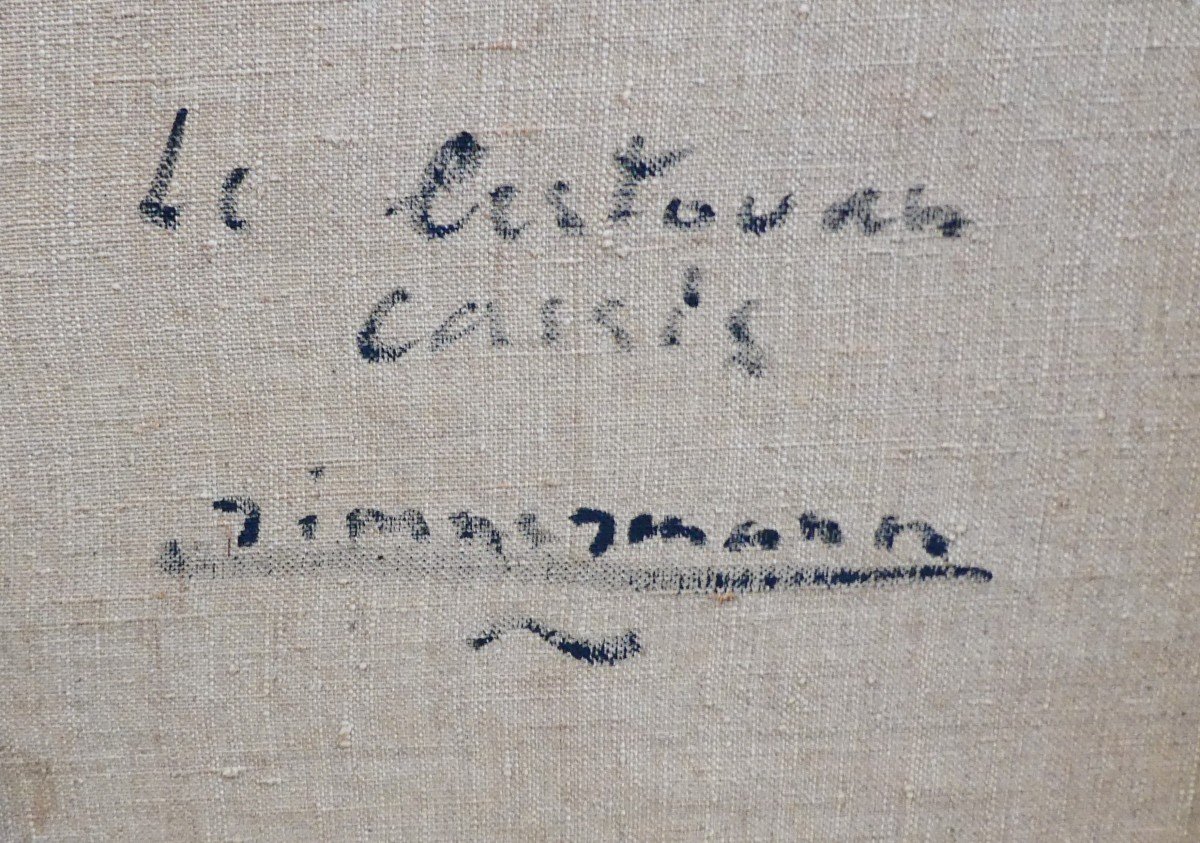 Le lestouan
cassis
zimmermann